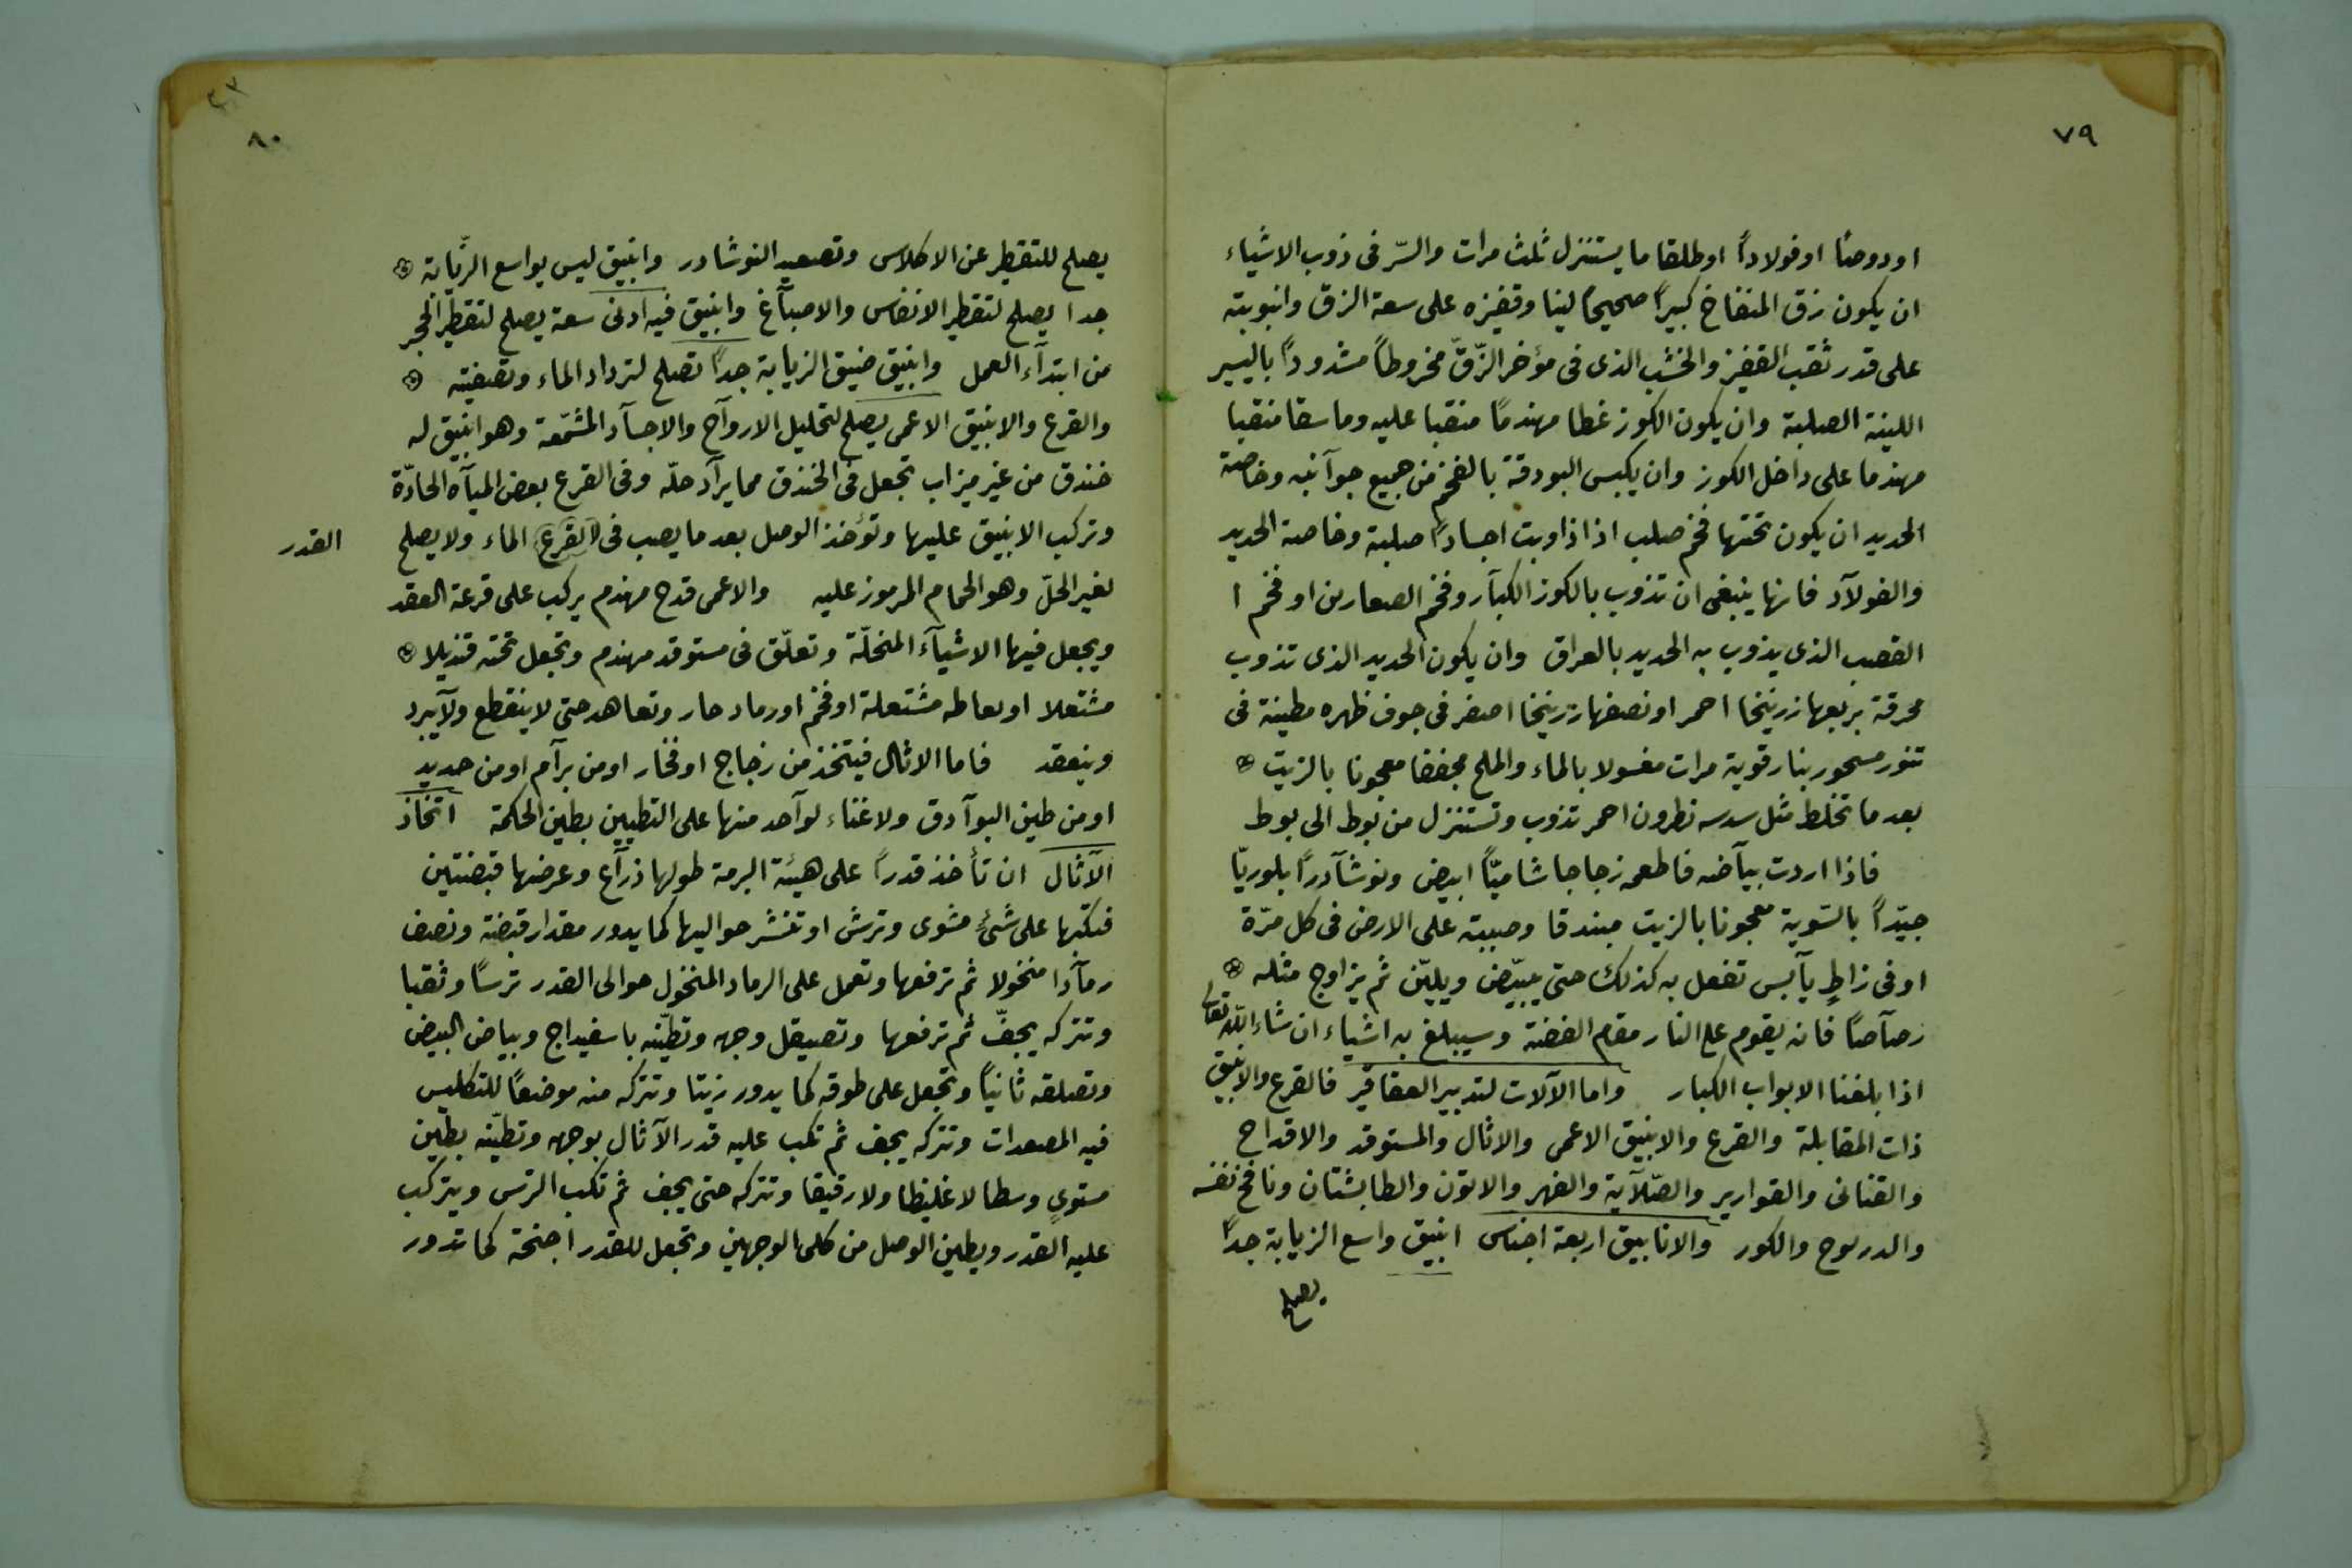 ٧٩
او دوصا او فولاداً او طلقا ما يستنزل ثلث مرات والسّر فى ذوب الاشياء
ان يكون زق المنفاخ كبيراً صحيحاً لينا وقفيزه على سعة الزق وانبوبته
على قدر ثقب القفيز والخشب الذى فى مؤخر الزّقّ مخروطاً مشدوداً باليسير
اللينة الصلبة وان يكون الكوز غطا مهندمًا منقبا عليه وماسقا منقبا
مهندما على داخل الكوز وان يكبس البودقة بالفحم من جميع جوآنبه وخاصة
الحديد ان يكون تحتها فحم صلب اذا ذاوبت اجساداً صلبة وخاصة الحديد
والفولآد فانها ينبغى ان تذوب بالكوز الكبآر وفحم الصعارين او فحم ا
القصب الذى يذوب به الحديد بالعراق وان يكون الحديد الذى تذوب
محرقة بربعها زرنيخا احمر او نصفها زرنيخا اصفر فى جوف ظهره مطينة فى
تنور مسجور بنار قوية مرات مغسولا بالماء والملح مجففا معجونا بالزيت
بعد ما تخلط مثل سدسه نطرون احمر تذوب وتستنزل من بوط الى بوط
فاذا اردت بيآضه فاطعمه زجاجا شاميّاً ابيض ونوشآدراً بلوريّا
جيّداً بالسّوية معجونا بالزيت مبندقا وصببته على الارض فى كل مرّة
او فى زاطٍ يآبس تفعل به كذلك حتى يبيّض ويليّن ثم يزاوج مثله
رصآصًا فانه يقوم على النار مقام الفضة وسيبلغ به اشياء ان شاء اللّه تعالى
اذا بلغنا الابواب الكبار واما الآلات لتدبير العقاقير فالقرع والانبيق
ذات المقابلة والقرع والانبيق الاعمى والاثال والمستوقد والاقداح
والقنانى والقوارير والصّلآية والفهر والاتون والطابشتان ونافخ نفسه
والدرلوح والكور والانابيق اربعة اجناس انبيق واسع الزيابة جداً
يصلح
٨٠
يصلح للتقطير عن الاكلاس وتصعيد النوشادر وانبيق ليس بواسع الزّيابة
جدا يصلح لتقطير الانفاس والاصبآغ وانبيق فيه ادنى سعة يصلح لتقطير الحجر
من ابتدآء العمل وانبيق ضيق الزيابة جداً تصلح لترداد الماء وتصفيته
والقرع والانبيق الاعمى يصلح لتحليل الاروآح والاجسآد المشمّعة وهو انبيق له
خندق من غير ميزاب تجعل فى الخندق مما يرآد حلّه وفى القرع بعض الميآه الحادّة
وتركب الانبيق عليها وتؤخذ الوصل بعد ما يصب فى القرع الماء ولا يصلح
القدر
لغير الحلّ وهو الحمام المرموز عليه والاعمى قدح مهندم يركب على قرعة العقد
ويجعل فيها الاشيآء المنحلّة وتعلّق فى مستوقد مهندم وتجعل تحته قنديلا
مشتعلا او نعاطه مشتعلة او فحم او رماد حار وتعاهد حتى لا ينقطع ولآ يبرد
وينعقد فاما الاثال فيتخذ من زجاج او فخار او من برآم او من حديد
او من طين البوآدق ولا غناء لوآحد منها على التطيين بطين الحكمة اتخاذ
الآثال ان تأخذ قدراً على هيئة البرمة طولها ذرآع وعرضها قبضتين
فتكبّها على شئ مشوى وترش او تنشر حواليها كما يدور مقدار قبضة ونصف
رمآدا منخولا ثم ترفعها وتعمل على الرماد المنخول حوالى القدر ترسًا وثقبا
وتتركه يجفّ ثم ترفعها وتصيقل وجهه وتطيّنه باسفيداج وبياض البيض
وتصلقه ثانياً وتجعل على طوقه كما يدور زيتا وتتركه منه موضعًا للتكليس
فيه المصعدات وتتركه يجف ثم تكب عليه قدر الآثال بوجهه وتطيّنه بطين
مستوىٍ وسطا لا غليظا ولا رقيقا وتتركه حتى يجف ثم تكب الترس ويتركب
عليه القدر ويطين الوصل من كلى الوجهين وتجعل للقدر اجنحة كما تدور